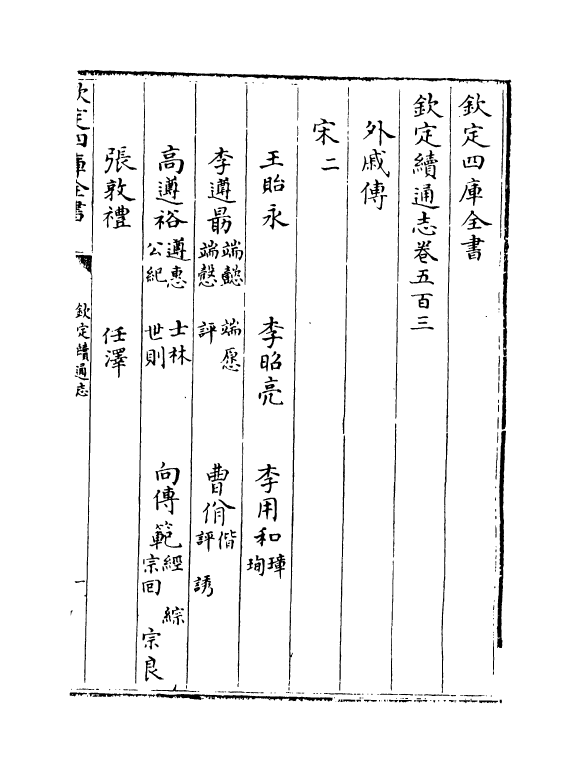 欽定四庫全書
欽定續通志卷五百三
外戚傳
宋二
王貽永 李昭亮 李用和璋珣
李遵勗端懿端愨端愿評 曹佾偕評誘
高遵裕遵惠公紀士林世則 向傳範經綜宗回宗良
張敦禮 任澤
欽定四庫全書
欽定續通志
一